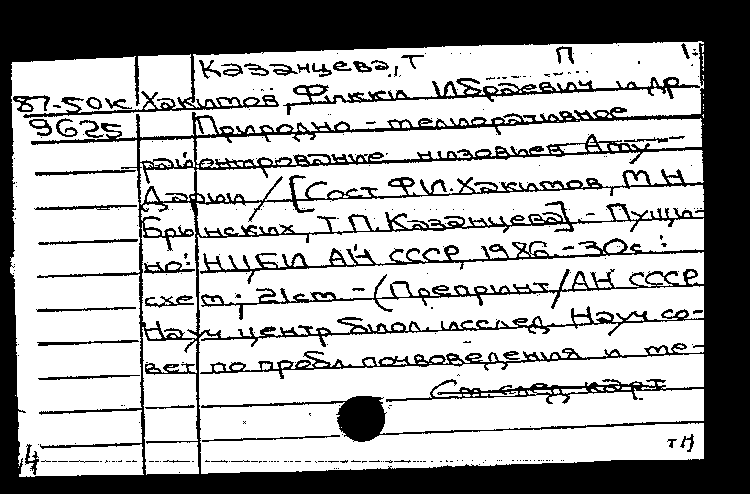 Казанцева, Т П
87-50к Хакимов, Фикки Ибраевич и др
9625 Природно-мелиоративное
районирование низовиев Аму-
Дарьи / [Сост Ф.И.Хакимов, М.Н.
Брынских, Т.П.Казанцева]. - Пущи-
но: НЦБИ АН СССР, 1986. - 30с :
схем; 21см. - (Препринт/АН СССР
Науч. центр биол. исслед. Науч со-
вет по пробл. почвоведения и ме-
См. след карт
14
тП